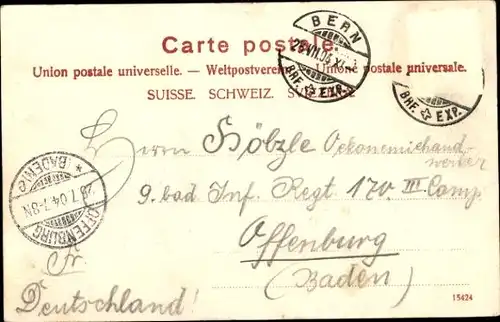 Carte postale.
Union postale universelle. — Weltpostverein. Unione postale universale.
SUISSE. SCHWEIZ. SVIZZERA
BERN
BRF. EXP.
BRF. EXP.
Herrn Hölzle Oekonomiehand-
werker
9. bad Inf. Regt 170. III Comp.
Offenburg
(Baden)
Fr.
Deutschland!
* BADEN * 
OFFENBURG
15424